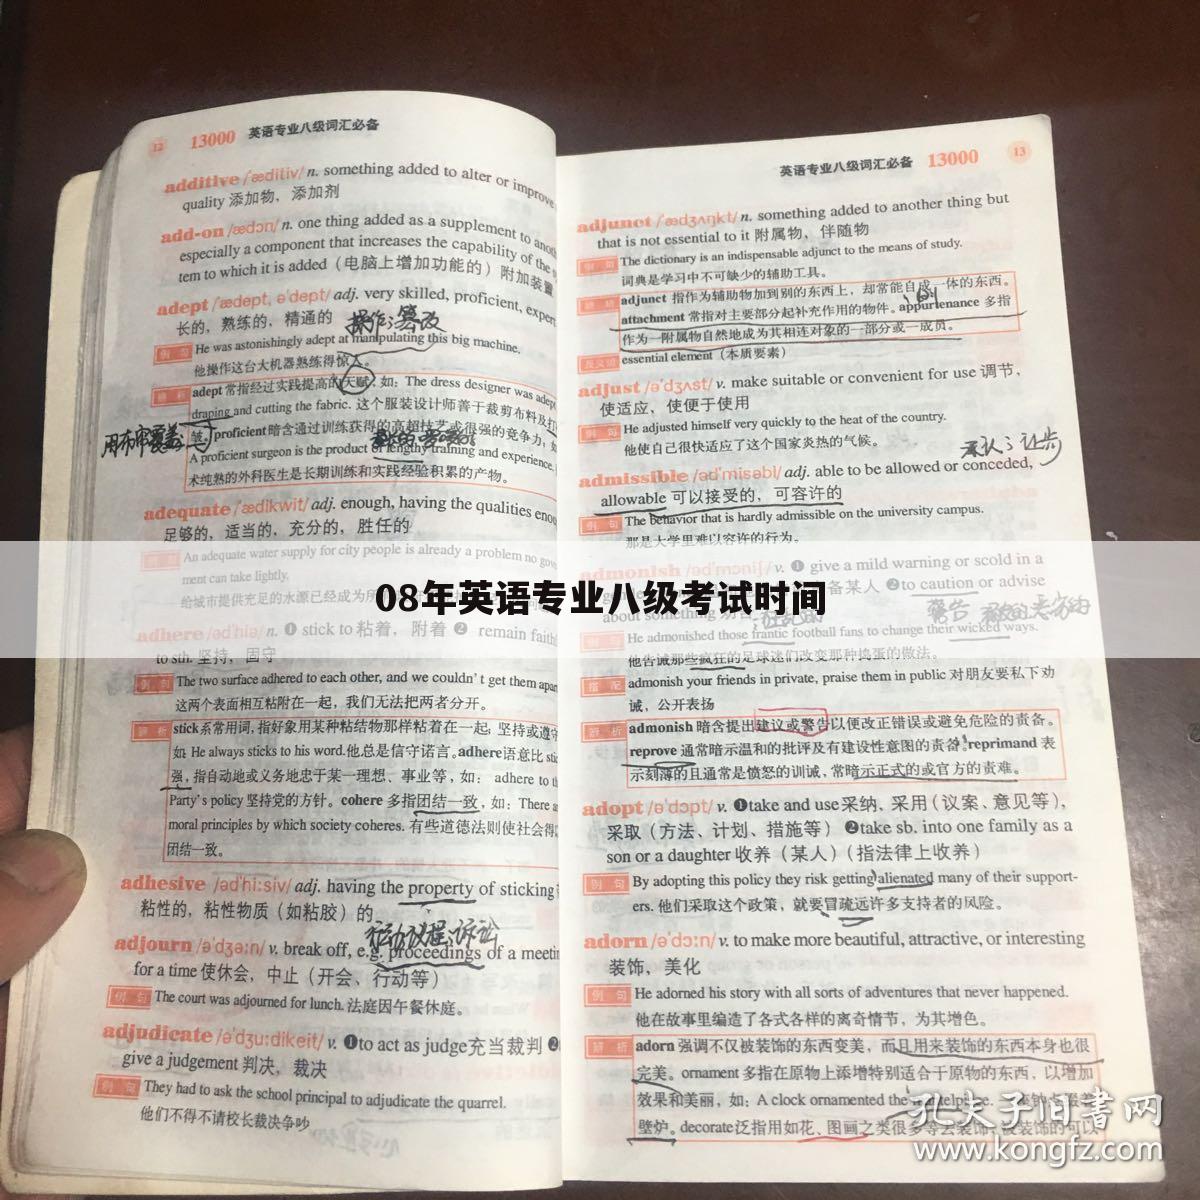 12 13000 英语专业八级词汇必备
additive /ˈæditiv/ n. something added to alter or improve
quality 添加物，添加剂
add-on /ædɔn/ n. one thing added as a supplement to
especially a component that increases the capability of the
tem to which it is added（电脑上增加功能的）附加装置
adept /ˈædept, əˈdept/ adj. very skilled, proficient, expert
长的，熟练的，精通的 操作；篡改
例句 He was astonishingly adept at manipulating this big machine.
他操作这台大机器熟练得惊人。
辨析 adept 常指经过实践提高的天赋，如：The dress designer was adept
draping and cutting the fabric. 这个服装设计师善于裁剪布料及打
proficient 暗含通过训练获得的高超技艺或很强的竞争力，如
A proficient surgeon is the product of lengthy training and experience.
术纯熟的外科医生是长期训练和实践经验积累的产物。
adequate /ˈædikwit/ adj. enough, having the qualities
足够的，适当的，充分的，胜任的
An adequate water supply for city people is already a problem no
ment can take lightly.
给城市提供充足的水源已经成为
adhere /ədˈhiə/ n. ❶ stick to 粘着，附着 ❷ remain
to sth. 坚持，固守
例句 The two surface adhered to each other, and we couldn't get them
这两个表面相互粘附在一起，我们无法把两者分开。
辨析 stick系常用词，指好象用某种粘结物那样粘着在一起，坚持或遵守
如 He always sticks to his word.他总是信守诺言。adhere语意比
强，指自动地或义务地忠于某一理想、事业等，如： adhere to
Party's policy 坚持党的方针。cohere 多指团结一致，如：There
moral principles by which society coheres. 有些道德法则使社会得
团结一致。
adhesive /ədˈhi:siv/ adj. having the property of sticking
粘性的，粘性物质（如粘胶）的
adjourn /əˈdʒə:n/ v. break off, e.g. proceedings of a
行动；议程；诉讼
for a time 使休会，中止（开会、行动等）
例句 The court was adjourned for lunch. 法庭因午餐休庭。
adjudicate /əˈdʒu:dikeit/ v. ❶to act as judge充当裁判 ❷
give a judgement 判决，裁决
例句 They had to ask the school principal to adjudicate the quarrel.
他们不得不请校长裁决争吵
英语专业八级词汇必备 13000 13
adjunct /ˈædʒʌŋkt/ n. something added to another thing but
that is not essential to it 附属物，伴随物
例句 The dictionary is an indispensable adjunct to the means of study.
词典是学习中不可缺少的辅助工具。
辨析 adjunct 指作为辅助物加到别的东西上，却常能自成一体的东西。
attachment 常指对主要部分起补充作用的物件。appurtenance 多指
作为一附属物自然地成为其相连对象的一部分或一成员。
反义词 essential element（本质要素）
adjust /əˈdʒʌst/ v. make suitable or convenient for use 调节，
使适应，使便于使用
例句 He adjusted himself very quickly to the heat of the country.
他使自己很快适应了这个国家炎热的气候。
承认；让步
admissible /ədˈmisəbl/ adj. able to be allowed or conceded,
allowable 可以接受的，可容许的
例句 The behavior that is hardly admissible on the university campus.
那是大学里难以容许的行为。
admonish /ədˈmɔniʃ/ v. ❶ give a mild warning or scold in a
备某人 ❷to caution or advise
08年英语专业八级考试时间
about something
警告
He admonished those frantic football fans to change their wicked ways.
他告诫那些疯狂的足球迷们改变那种捣蛋的做法。
搭配 admonish your friends in private, praise them in public 对朋友要私下劝
诫，公开表扬
辨析 admonish 暗含提出建议或警告以便改正错误或避免危险的责备。
reprove 通常暗示温和的批评及有建设性意图的责备。reprimand 表
示刻薄的且通常是愤怒的训诫，常暗示正式的或官方的责难。
adopt /əˈdɔpt/ v. ❶take and use采纳、采用（议案、意见等），
采取（方法、计划、措施等） ❷take sb. into one family as a
son or a daughter 收养（某人）（指法律上收养）
例句 By adopting this policy they risk getting alienated many of their support-
ers. 他们采取这个政策，就要冒疏远许多支持者的风险。
adorn /əˈdɔ:n/ v. to make more beautiful, attractive, or interesting
装饰，美化
例句 He adorned his story with all sorts of adventures that never happened.
他在故事里编造了各式各样的离奇情节，为其增色。
辨析 adorn 强调不仅被装饰的东西变美，而且用来装饰的东西本身也很
完美。ornament 多指在原物上添增特别适合于原物的东西，以增加
效果和美丽，如：A clock ornamented the
壁炉。decorate 泛指用如花、图画之类很多
孔夫子旧书网
www.kongfz.com